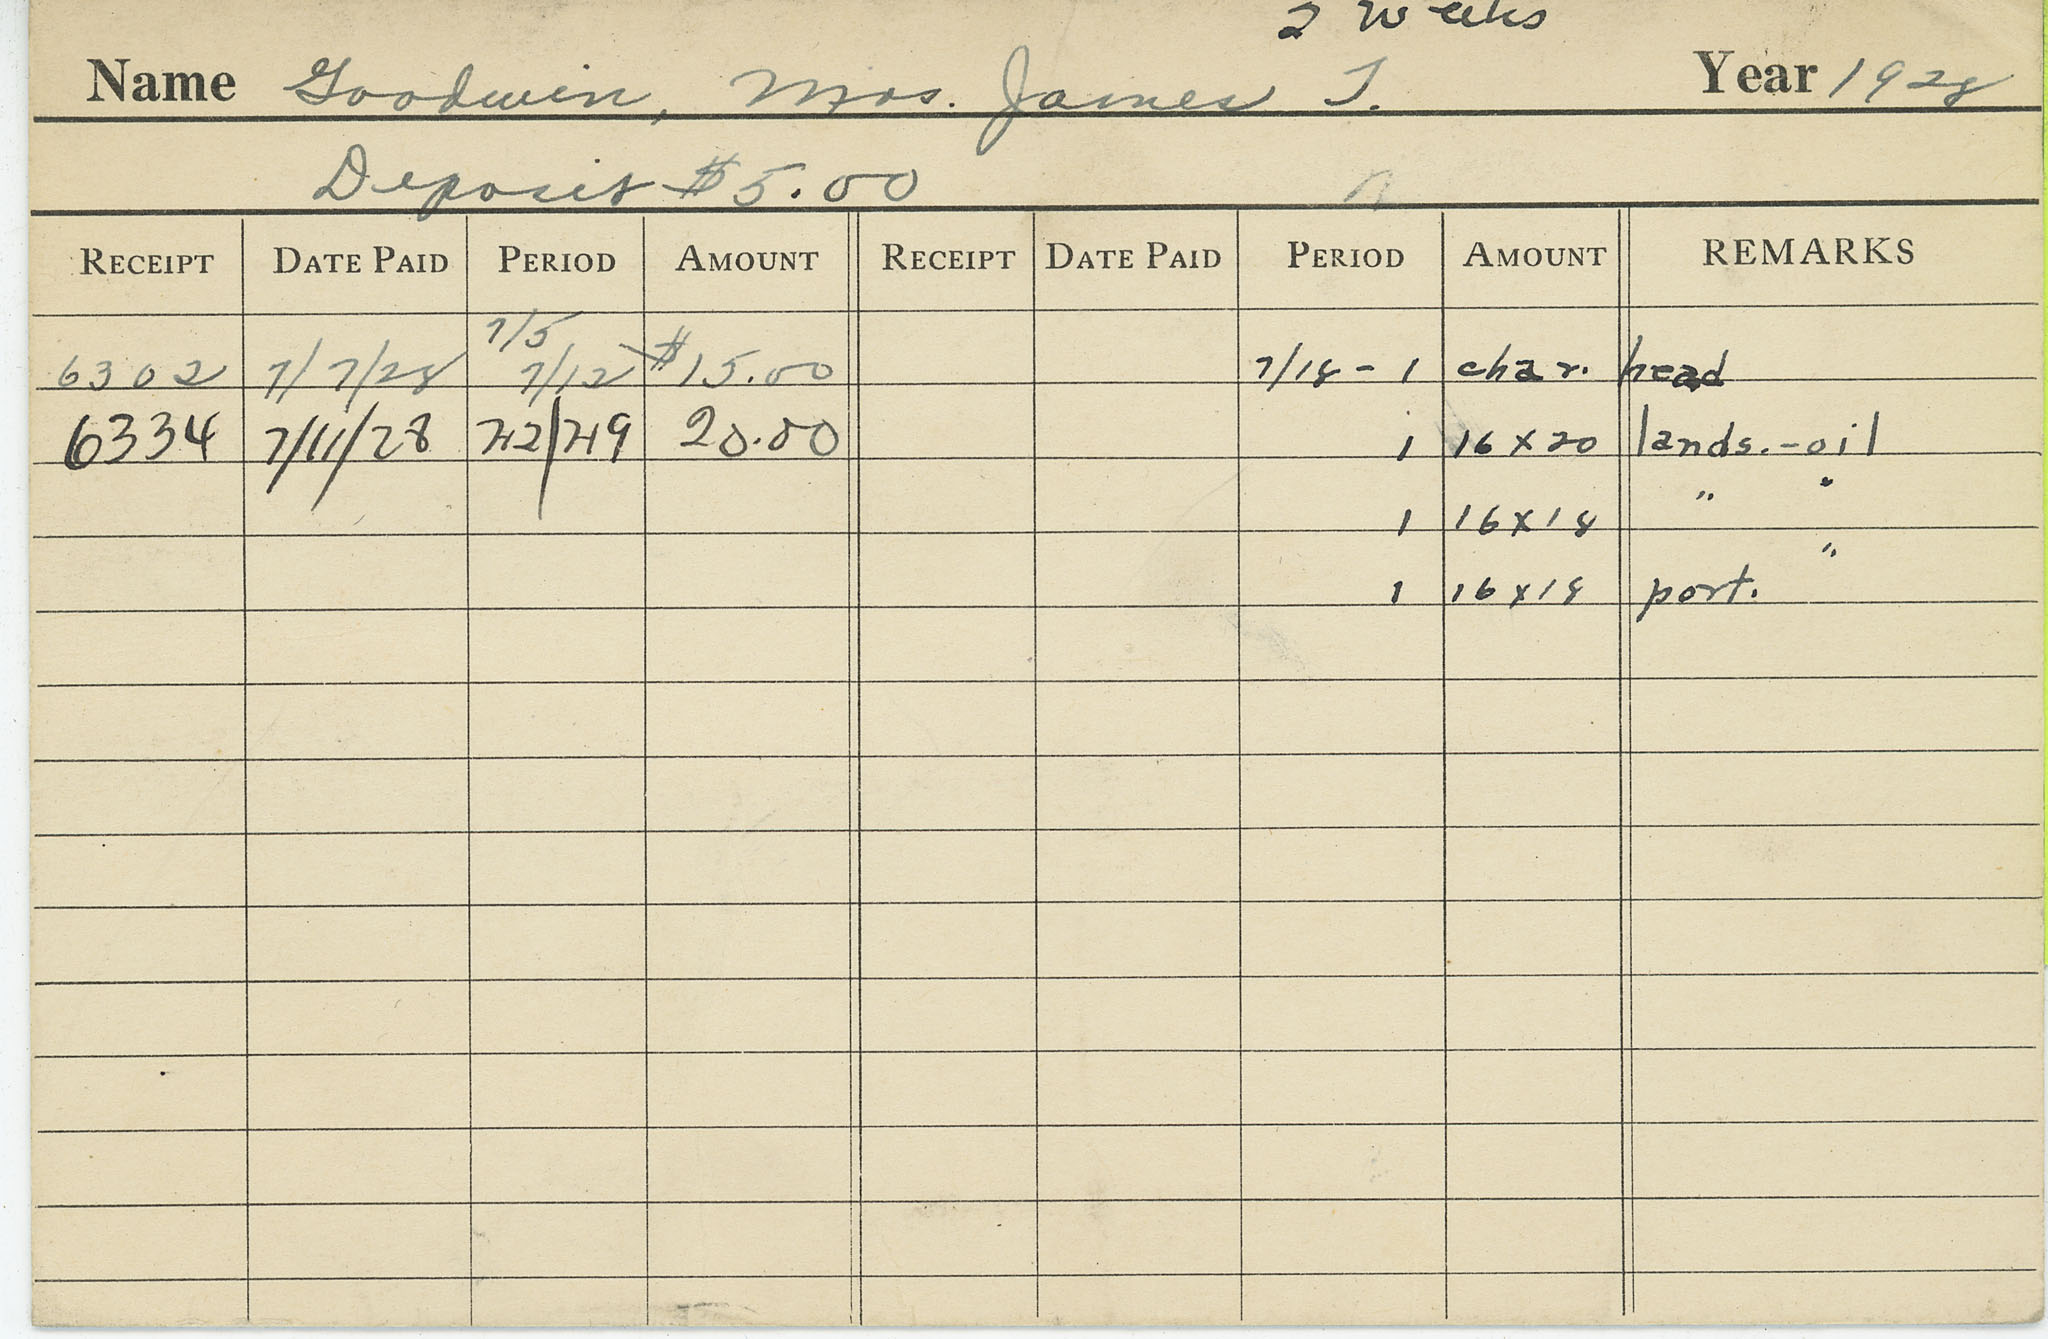 2 weeks
Name Goodwin, Mrs. James J. Year 1928
Deposit $5.00
RECEIPT DATE PAID PERIOD AMOUNT RECEIPT DATE PAID PERIOD AMOUNT REMARKS
7/5
6302 7/7/28 7/12 $15.00 7/18 - 1 char. head
6334 7/11/28 7/12/7/19 20.00 1 16 x 20 lands. - oil
1 16 x 18 " "
1 16 x 18 port. "